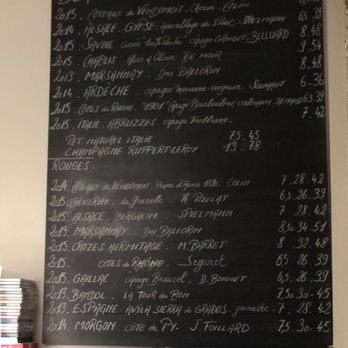 2015 - COTEAUX du VENDÔMOIS - Chenin - COLIN 6.5 39
2014 - ALSACE - GYPSE - Assemblage des STIELMANN 8.48
2015 - SAVOIE - cépage GRINGET - BELLUARD 8.48
2015 - CHABLIS Alice & Olivier DE MOOR 9.54
2013 - MARSANNAY - Dom BALLORIN 8.48
2014 - ARDECHE - cépage marsanne-roussanne - SOUHAUT
2015 - CÔTES du RHÔNE - "1901" Cépage Bourboulenc centenaire 6.5 39
2015 - ITALIE ABRUZZES cépage Trebbiano 7.42
PET NATUREL ITALIE 7.5.45
CHAMPAGNE RUPPERT-LEROY 13.78
ROUGES.
2014 Coteaux du VENDÔMOIS - Pineau d'Aunis 1890 - COLIN 7.28.42
2015 - CHEVERNY - La Gravelle - PUZELAT 6.5.26.39
2015 - ALSACE - BERGHEIM SPIELMANN 7.28.42
2013 - MARSANNAY - Dom BALLORIN 8,50.34.51
2015 CROZES HERMITAGE - M. BARRET 8.32.48
2015. CÔTES du RHÔNE. Seguret 6.5 26.39
2015. GAILLAC. cépage Braucol. D. BONNET 6,5.26.39
2013. BANDOL - LA TOUR du BON 7,5.30.45
2013. ESPAGNE - AVILA SIERRA de GREDOS. grenache 7.28.42
2014 MORGON. côte du PY. J. FOILLARD 7,5.30.45